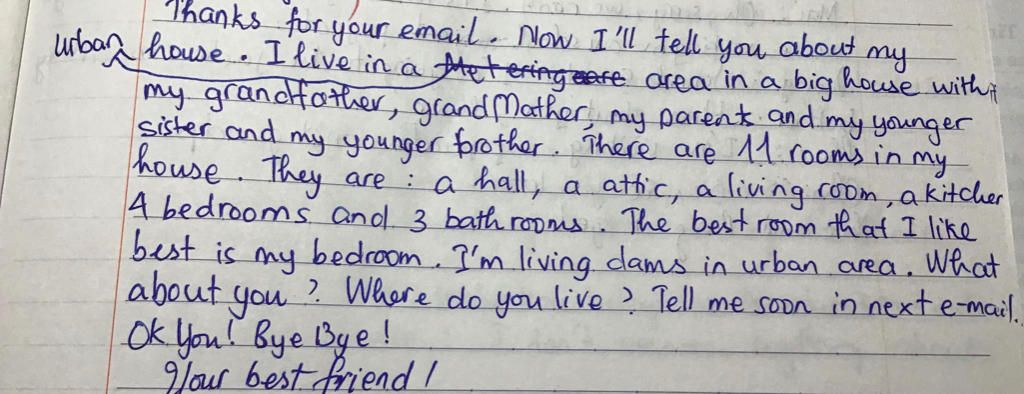 Thanks for your email. Now I'll tell you about my
urban house. I live in a area in a big house with
my grandfather, grandMather, my parents and my younger
sister and my younger brother. There are 11 rooms in my
house. They are : a hall, a attic, a living room, a kitchen
4 bedrooms and 3 bathrooms. The best room that I like
best is my bedroom. I'm living dams in urban area. What
about you ? Where do you live ? Tell me soon in next e-mail.
Ok You! Bye Bye !
Your best friend !